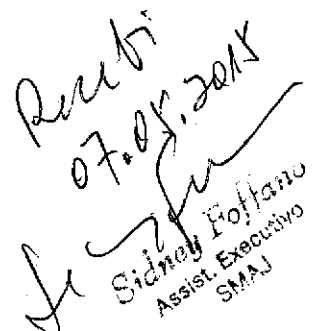 Recebi
07.05.2015
Sidney Foffano
Assist. Executivo
SMAJ